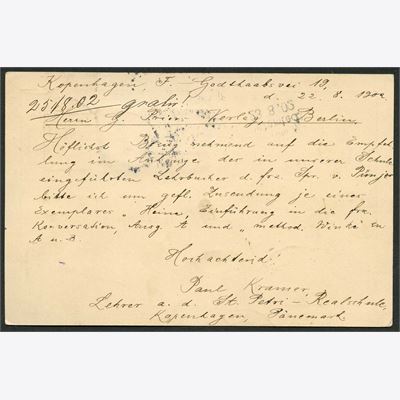 Kopenhagen, F. Godthaabsvei 19,
d. 22. 8. 1902
25/8.02 gratis!
Herrn G. Verlag, Berlin.
Höflichst Bezug nehmend auf die Empfeh-
lung im Anhange der in unserer Schule
eingeführten Lehrbücher d. fra. Spr. v. Pünjer
bitte ich um gefl. Zusendung je eines
Exemplares „Heine, Einführung in die fra.
Konversation, Ausg A und „method. Winke en
A u. B.
Hochachtend!
Paul Kramer,
Lehrer a. d. St. Petri - Realschule,
Kopenhagen, Dänemark